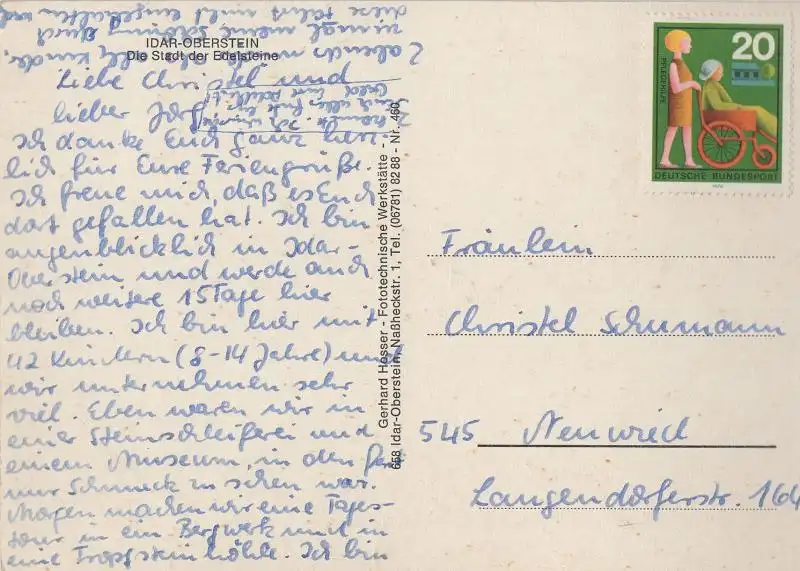 IDAR-OBERSTEIN
Die Stadt der Edelsteine
Liebe Christel und
lieber
Ich danke Euch ganz herz-
lich für Eure Feriengrüße.
Ich freue mich, daß es Euch
dort gefallen hat. Ich bin
augenblicklich in Idar-
Oberstein und werde auch
noch weitere 15 Tage hier
bleiben. Ich bin hier mit
42 Kindern (8-14 Jahre) und
wir unternehmen sehr
viel. Eben waren wir in
einer Steinschleiferei und
einem Museum, in dem
nur Schmuck zu sehen war.
Morgen machen wir eine Tages-
tour in ein Bergwerk und in
eine Tropfsteinhöhle. Ich bin
abends
Gerhard Hosser - Fototechnische Werkstätte -
658 Idar-Oberstein, Naßheckstr. 1, Tel. (06781) 8288 - Nr. 460
20
PFLEGEHILFE
DEUTSCHE BUNDESPOST
1970
Fräulein
Christel Schumann
545 Neuwied
Langendorferstr. 164